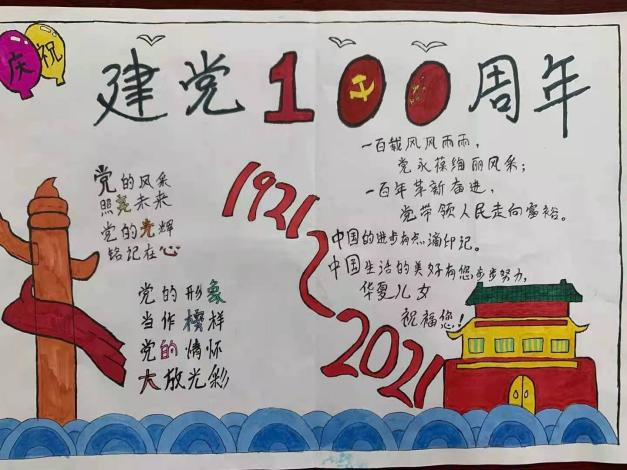 庆祝
建党100周年
党的风采
照亮未来
党的光辉
铭记在心
党的形象
当作榜样
党的情怀
大放光彩
1921~2021
一百载风风雨雨，
党永葆绚丽风采；
一百年革新奋进，
党带领人民走向富裕。
中国的进步有点滴印记。
中国生活的美好有您步步努力，
华夏儿女
祝福您！